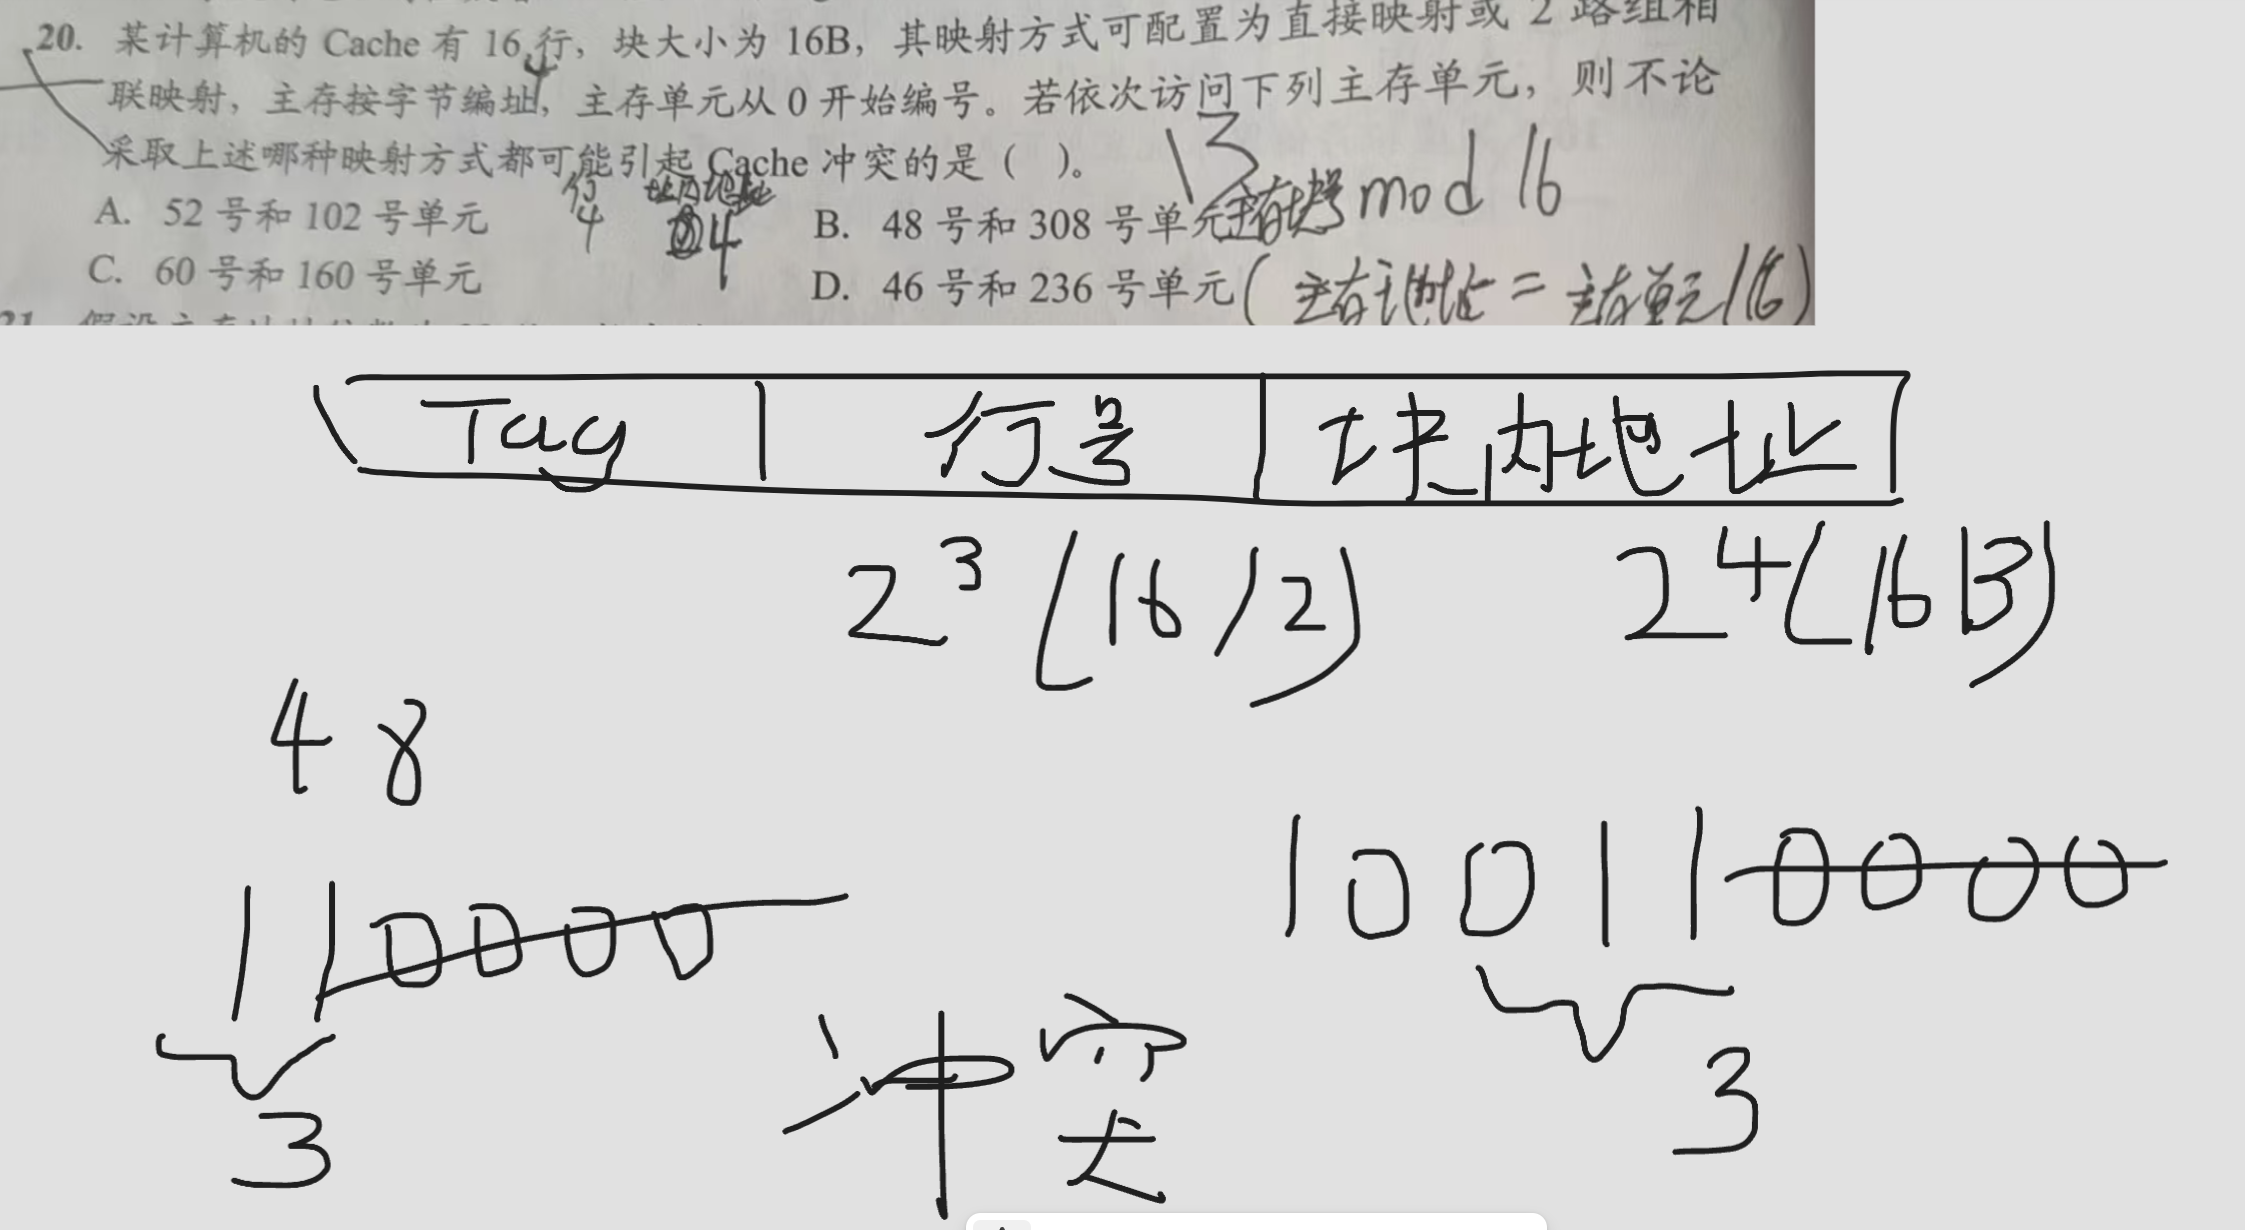 20. 某计算机的 Cache 有 16 行，块大小为 16B，其映射方式可配置为直接映射或 2 路组相
联映射，主存按字节编址，主存单元从 0 开始编号。若依次访问下列主存单元，则不论
采取上述哪种映射方式都可能引起 Cache 冲突的是（ ）。
13
行 块内地址
4 4
主存块号 mod 16
A. 52 号和 102 号单元
B. 48 号和 308 号单元
C. 60 号和 160 号单元
D. 46 号和 236 号单元
(主存地址 = 主存单元/16)
21.
Tag 行号 块内地址
2^3 (16/2) 2^4 (16B)
48
110000
100110000
3
冲突
3